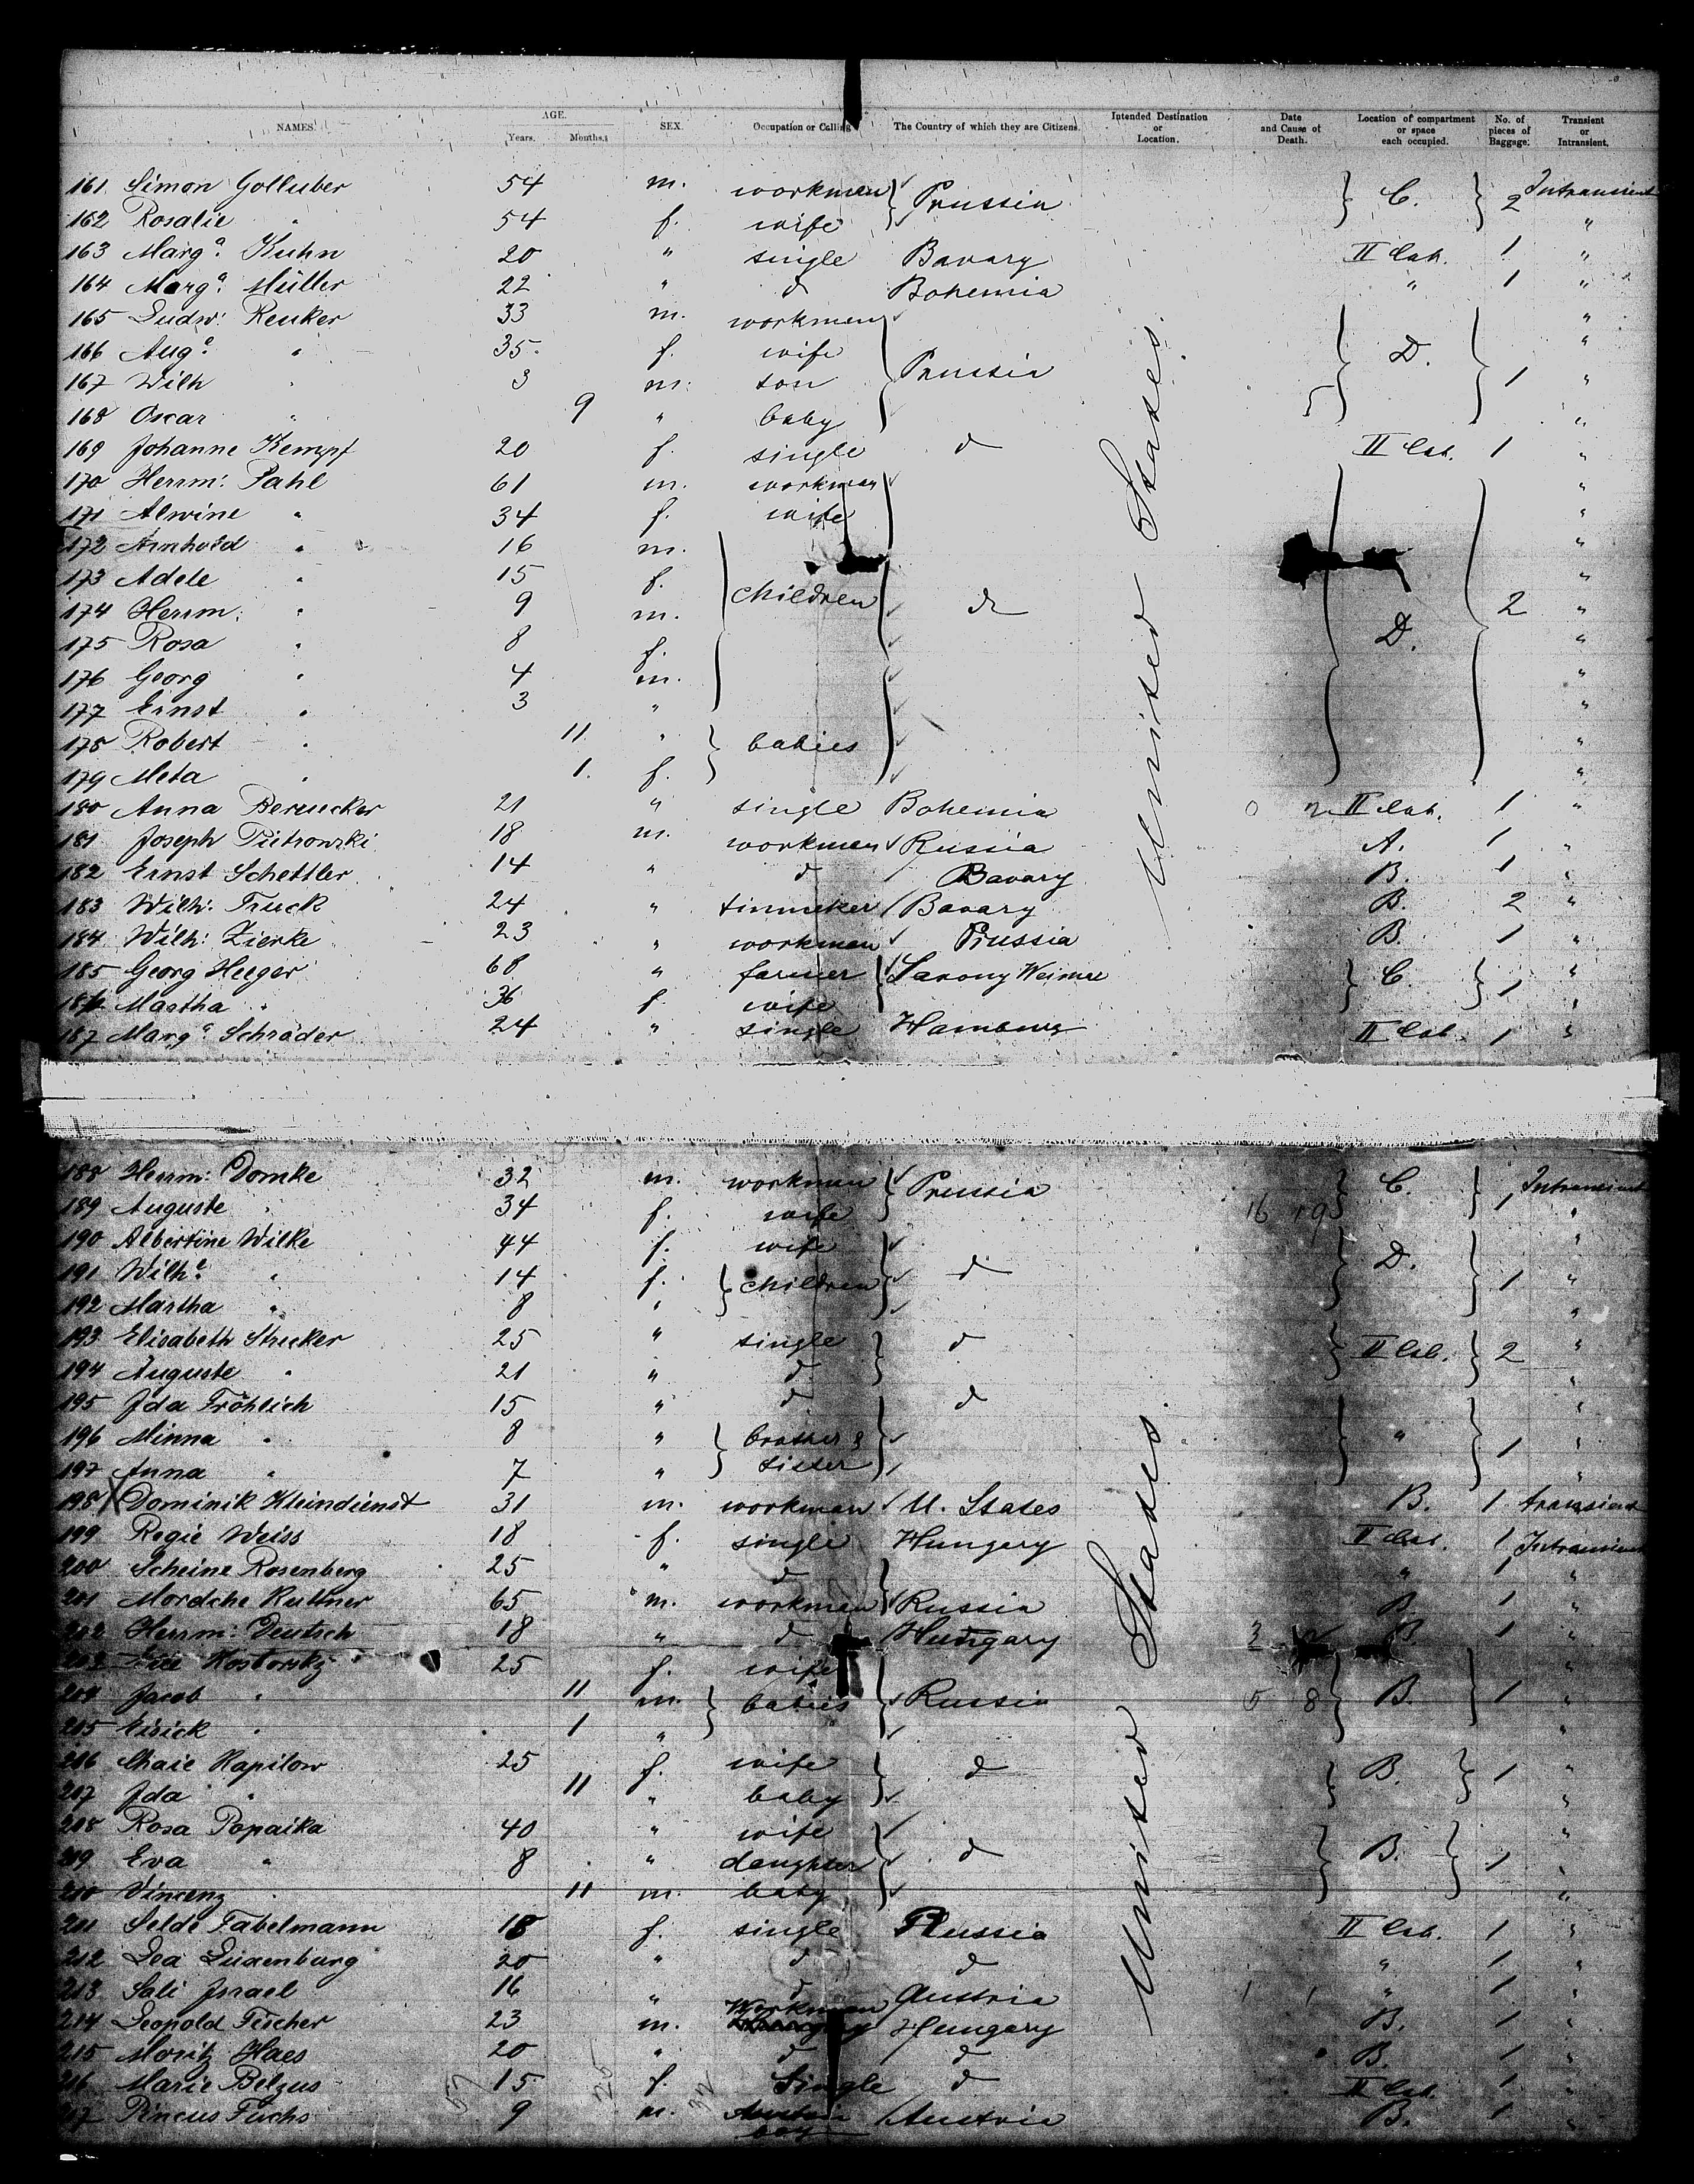 NAMES. AGE. Years. Months. SEX. Occupation or Calling The Country of which they are Citizens. Intended Destination or Location. Date and Cause of Death. Location of compartment or space each occupied. No. of pieces of Baggage. Transient or Intransient.
161 Simon Golluber 54 m. workman Prussia C. 2 Intransient
162 Rosalie " 54 f. wife "
163 Marg.a Kuhn 20 " single Bavary II Cab. 1 "
164 Marg.a Müller 22 " d Bohemia " 1 "
165 Ludw: Reuker 33 m. workman "
166 Aug.a " 35 f. wife Prussia D. "
167 Wilh " 3 m. son 1 "
168 Oscar " 9 " baby 5 "
169 Johanne Kempf 20 f. single d II Cab. 1 "
170 Herrm: Pahl 61 m. workman "
171 Alwine " 34 f. wife "
172 Arnhold " 16 m. "
173 Adele " 15 f. children "
174 Herrm: " 9 m. do 2 "
175 Rosa " 8 f. D. "
176 Georg " 4 m. "
177 Ernst " 3 " "
178 Robert " 11 " babies "
179 Meta " 1. f. "
180 Anna Beruecker 21 " single Bohemia II Cab. 1 "
181 Joseph Pietrowski 18 m. workman Russia A. 1 "
182 Ernst Schettler 14 " d Bavary B. 1 "
183 Wilh: Truck 24 " Bavary B. 2 "
184 Wilh: Zierke 23 " workman Prussia B. 1 "
185 Georg Heeger 68 " farmer Saxony Weimar C. "
186 Martha " 36 f wife 1 "
187 Marg.a Schrader 24 " single Hamburg II Cab. 1 "
United States.
188 Herrm: Domke 32 m. workman Prussia C. 1 Intransient
189 Auguste " 34 f. wife 16 19 "
190 Albertine Wilke 44 f. wife D. "
191 Wilh.a " 14 f. children d 1 "
192 Martha " 8 " "
193 Elisabeth Strecker 25 " single d II Cab. 2 "
194 Auguste " 21 " d "
195 Ida Fröhlich 15 " d d "
196 Minna " 8 " brother & " "
197 Anna " 7 " sister 1 "
198 Dominik Kleindienst 31 m. workman U. States B. 1 transient
199 Regie Weiss 18 f. single Hungary II Cab. 1 Intransient
200 Scheine Rosenberg 25 " d " 1 "
201 Mordche Ruttner 65 m. workman Russia B. 1 "
202 Herrm: Deutsch 18 " d Hungary 3 B. 1 "
203 Kostorsky 25 f. wife "
204 Jacob " 11 m. babies Russia 5 8 B. 1 "
205 Eisick " 1 " "
206 Chaie Kapilow 25 f. wife d B. 1 "
207 Ida " 11 " baby "
208 Rosa Popaika 40 " wife "
209 Eva " 8 " daughter d B. 1 "
210 Vincenz " 11 m. baby "
211 Selde Fabelmann 18 f. single Russia II Cab. 1 "
212 Lea Luxenburg 20 " d d " 1 "
213 Sali Israel 16 " d Austria " 1 "
214 Leopold Fischer 23 m. Workman Hungary B. 1 "
215 Moritz Haes 20 " d d B. 1 "
216 Marie Belzus 15 f. Single d II Cab. 1 "
217 Pincus Fuchs 9 m. boy Austria B. 1 "
United States.